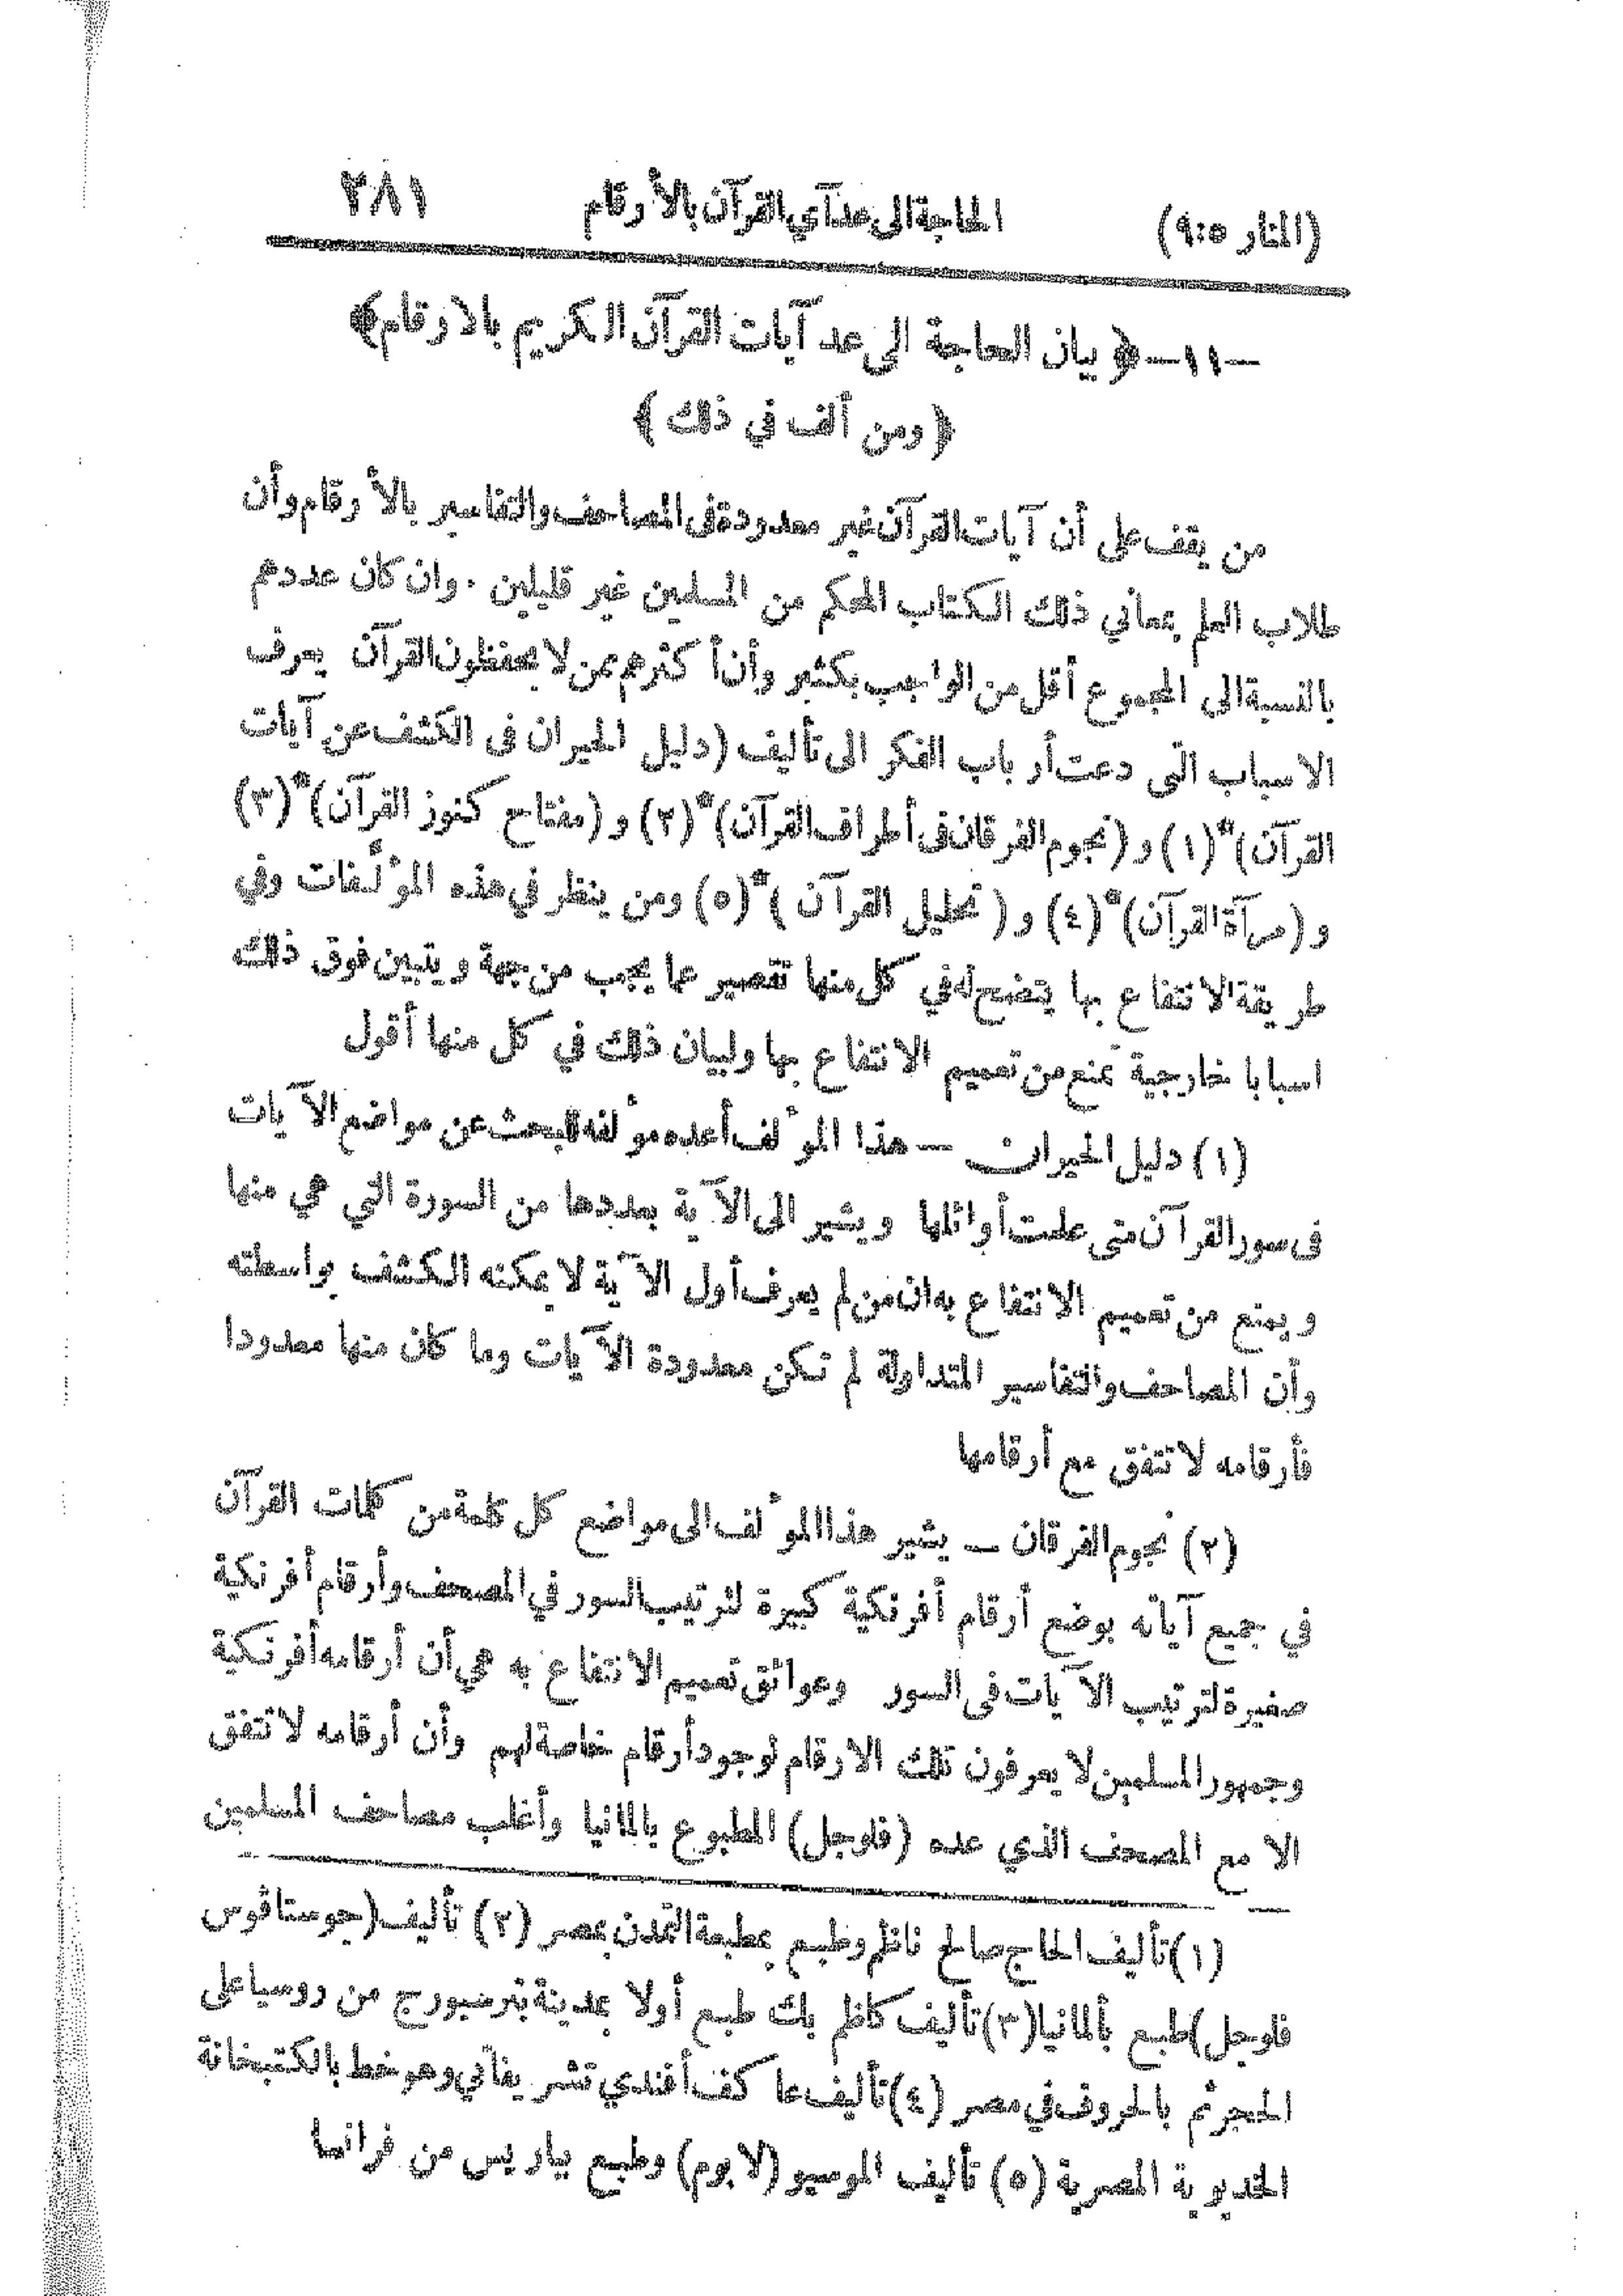 (المنار ٩:٥) الحاجة الى عد آي القرآن بالأرقام ٢٨١
—١١—﴿ بيان الحاجة الى عد آيات القرآن الكريم بالارقام﴾
﴿ ومن ألف في ذلك ﴾
من يقف على أن آيات القرآن غير معدودة فى المصاحف والتفاسير بالأرقام وأن
طلاب العلم بمعاني ذلك الكتاب المحكم من المسلمين غير قليلين . وان كان عددهم
بالنسبة الى المجموع أقل من الواجب بكثير وأن أكثرهم ممن لا يحفظون القرآن يعرف
الاسباب التى دعت أرباب الفكر الى تأليف (دليل الحيران فى الكشف عن آيات
القرآن)*(١) و (نجوم الفرقان فى أطراف القرآن)*(٢) و (مفتاح كنوز القرآن)*(٣)
و (مرآة القرآن)*(٤) و ( تحليل القرآن )*(٥) ومن ينظر في هذه المؤلفات وفي
طريقة الانتفاع بها يتضح له في كل منها تقصير عما يجب من جهة ويتبين فوق ذلك
اسبابا خارجية تمنع من تعميم الانتفاع بها ولبيان ذلك في كل منها أقول
(١) دليل الحيران — هذا المؤلف أعده مؤلفه للبحث عن مواضع الآيات
فى سور القرآن متى علمت أوائلها ويشير الى الآية بعددها من السورة التي هي منها
ويمنع من تعميم الانتفاع به ان من لم يعرف أول الآية لا يمكنه الكشف بواسطته
وأن المصاحف والتفاسير المتداولة لم تكن معدودة الآيات وما كان منها معدودا
فأرقامه لا تتفق مع أرقامها
(٢) نجوم الفرقان — يشير هذا المؤلف الى مواضع كل كلمة من كلمات القرآن
في جميع آياته بوضع أرقام أفرنكية كبيرة لترتيب السور في المصحف وأرقام أفرنكية
صغيرة لترتيب الآيات فى السور وعوائق تعميم الانتفاع به هي أن أرقامه أفرنكية
وجمهور المسلمين لا يعرفون تلك الارقام لوجود أرقام خاصة لهم وأن أرقامه لا تتفق
الا مع المصحف الذي عده (فلوجل) المطبوع بالمانيا وأغلب مصاحف المسلمين
(١) تأليف الحاج صالح ناظم وطبع بمطبعة التمدن بمصر (٢) تأليف (جوستاڤوس
فلوجل) طبع بألمانيا (٣) تأليف كاظم بك طبع أولا بمدينة بترسبورج من روسيا على
الحجر ثم بالحروف في مصر (٤) تأليف عاكف أفندي تشريفاتي وهو خط بالكتبخانة
الخديوية المصرية (٥) تأليف الموسيو (لابوم) وطبع بباريس من فرانسا